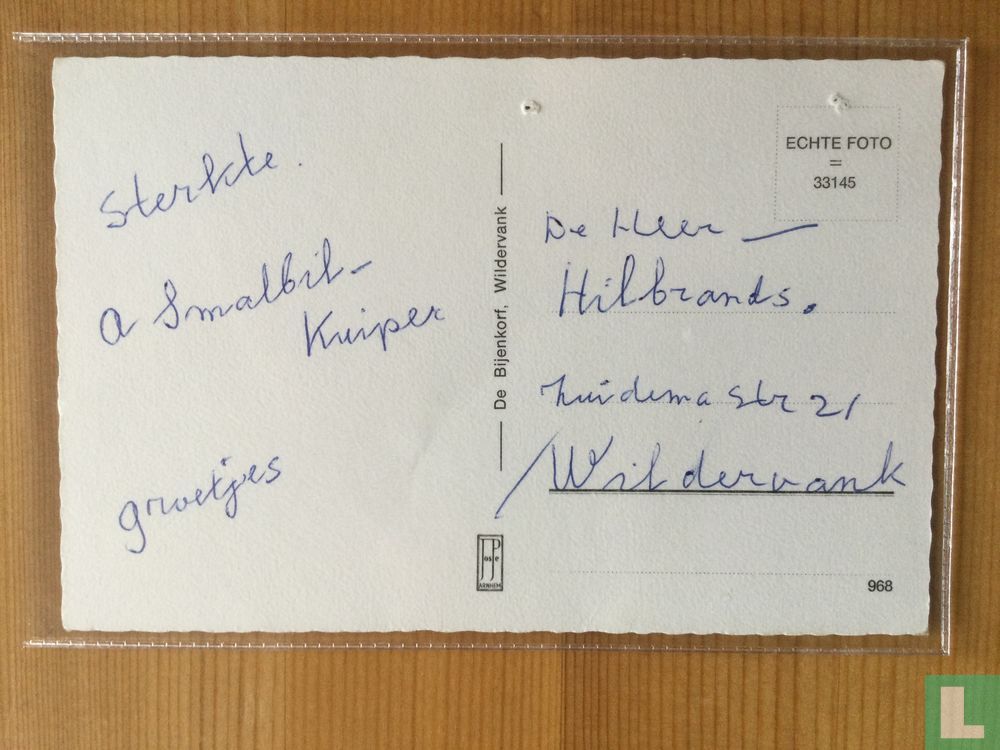 sterkte.
A Smalbil-
Kuiper
groetjes
De Bijenkorf, Wildervank
JosPe
ARNHEM
ECHTE FOTO
=
33145
De Heer —
Hilbrands.
Zuidema str 21
Wildervank
968
L